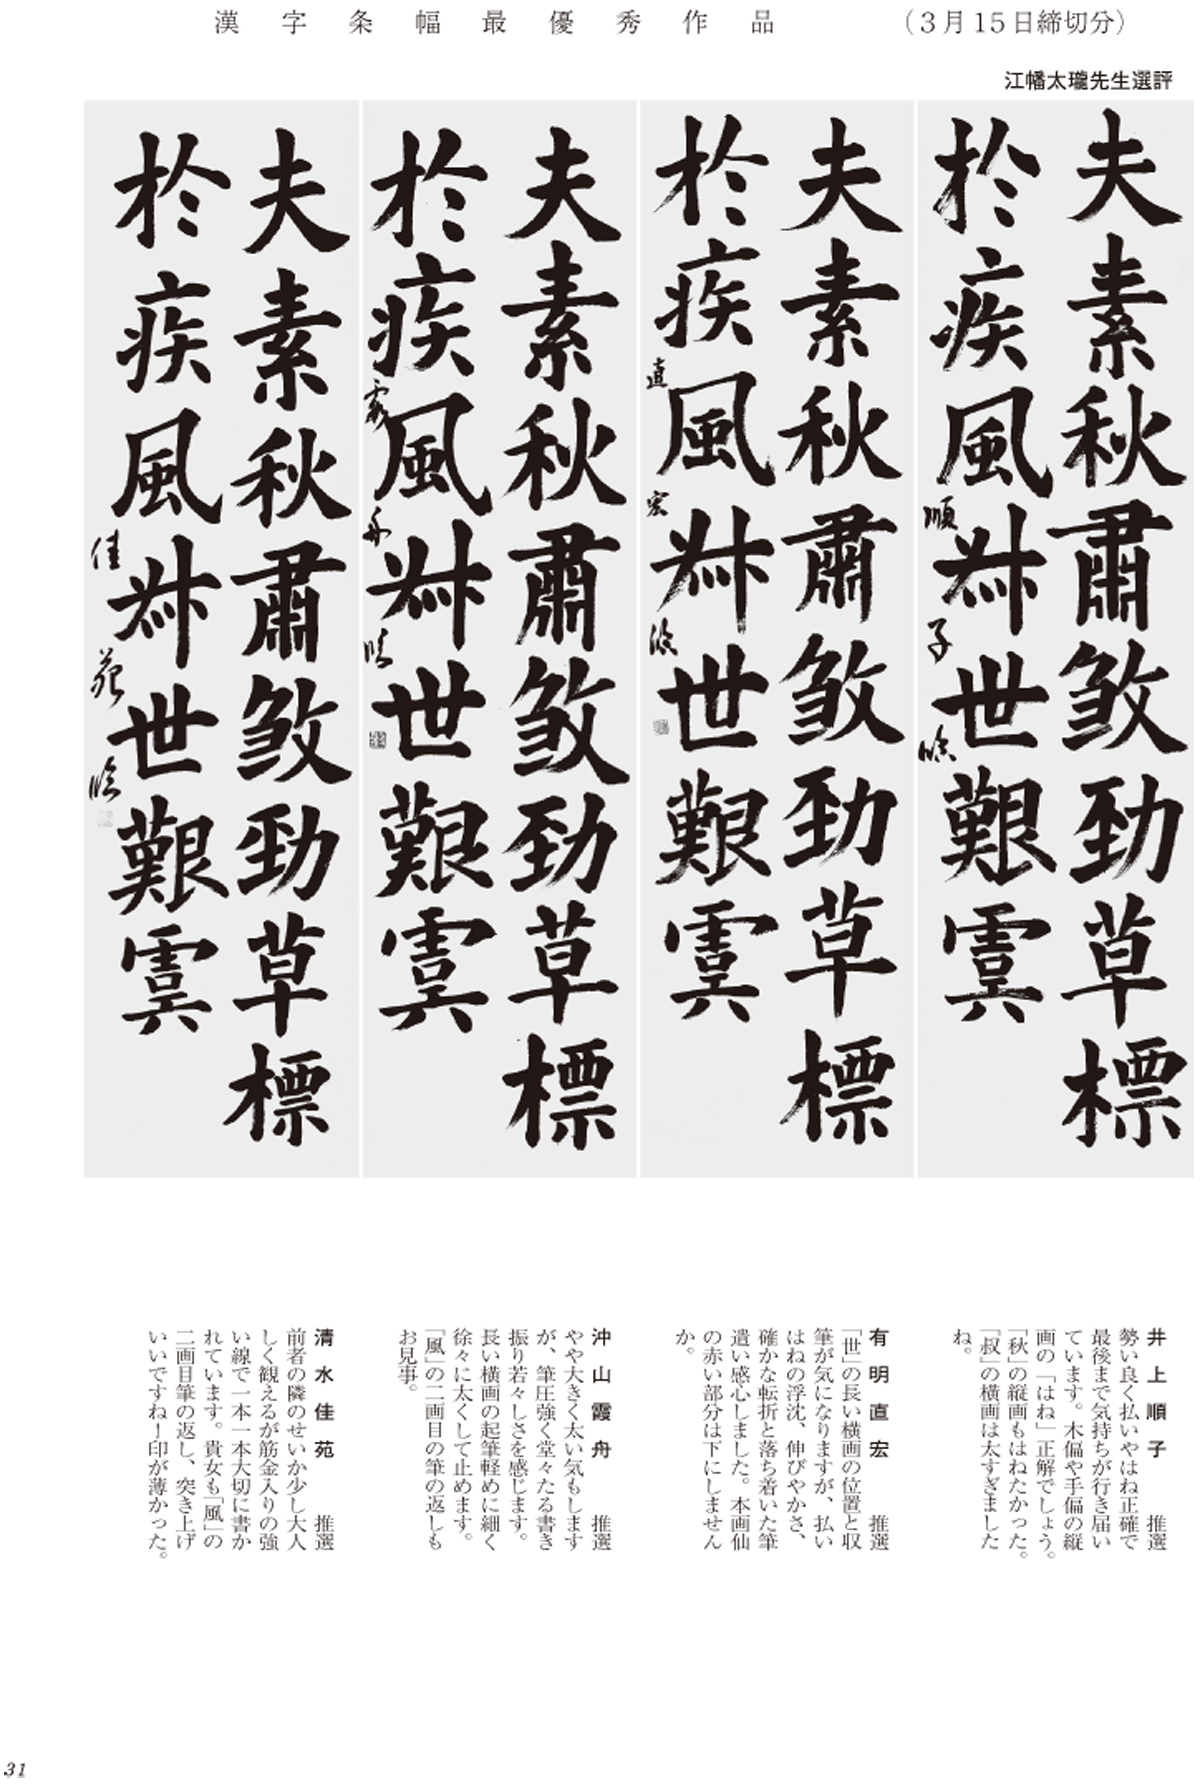 漢字条幅最優秀作品 （３月15日締切分）
江幡太瓏先生選評
夫素秋肅煞勁草標
於疾風叔世艱虞
順子臨
夫素秋肅煞勁草標
於疾風叔世艱虞
直宏臨
夫素秋肅煞勁草標
於疾風叔世艱虞
霞舟臨
夫素秋肅煞勁草標
於疾風叔世艱虞
佳苑臨
井上順子 推選
勢い良く払いやはね正確で
最後まで気持ちが行き届い
ています。木偏や手偏の縦
画の「はね」正解でしょう。
「秋」の縦画もはねたかった。
「叔」の横画は太すぎました
ね。
有明直宏 推選
「世」の長い横画の位置と収
筆が気になりますが、払い
はねの浮沈、伸びやかさ、
確かな転折と落ち着いた筆
遣い感心しました。本画仙
の赤い部分は下にしません
か。
沖山霞舟 推選
やや大きく太い気もします
が、筆圧強く堂々たる書き
振り若々しさを感じます。
長い横画の起筆軽めに細く
徐々に太くして止めます。
「風」の二画目の筆の返しも
お見事。
清水佳苑 推選
前者の隣のせいか少し大人
しく観えるが筋金入りの強
い線で一本一本大切に書か
れています。貴女も「風」の
二画目筆の返し、突き上げ
いいですね！印が薄かった。
31